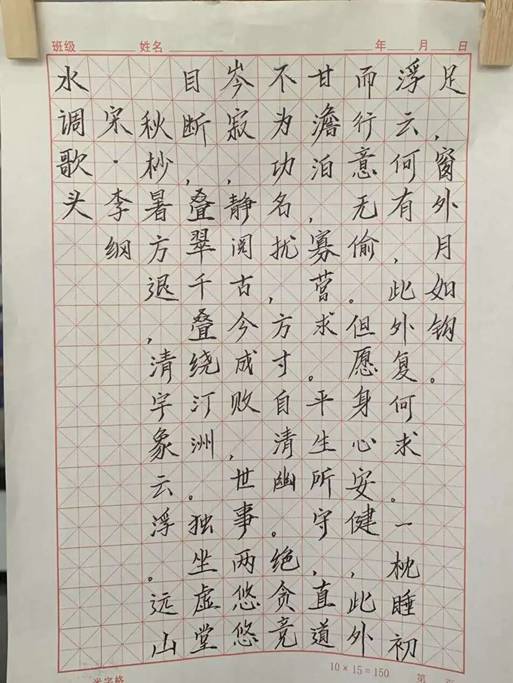 班级 姓名 年 月 日
水调歌头
宋·李纲
秋杪暑方退，清宇象云浮。远山
目断，叠翠千叠绕汀洲。独坐虚堂
岑寂，静阅古今成败，世事两悠悠
不为功名扰，方寸自清幽。绝贪竞
甘澹泊，寡营求。平生所守，直道
而行意无偷。但愿身心安健，此外
浮云何有，此外复何求。一枕睡初
足，窗外月如钩。
10×15=150